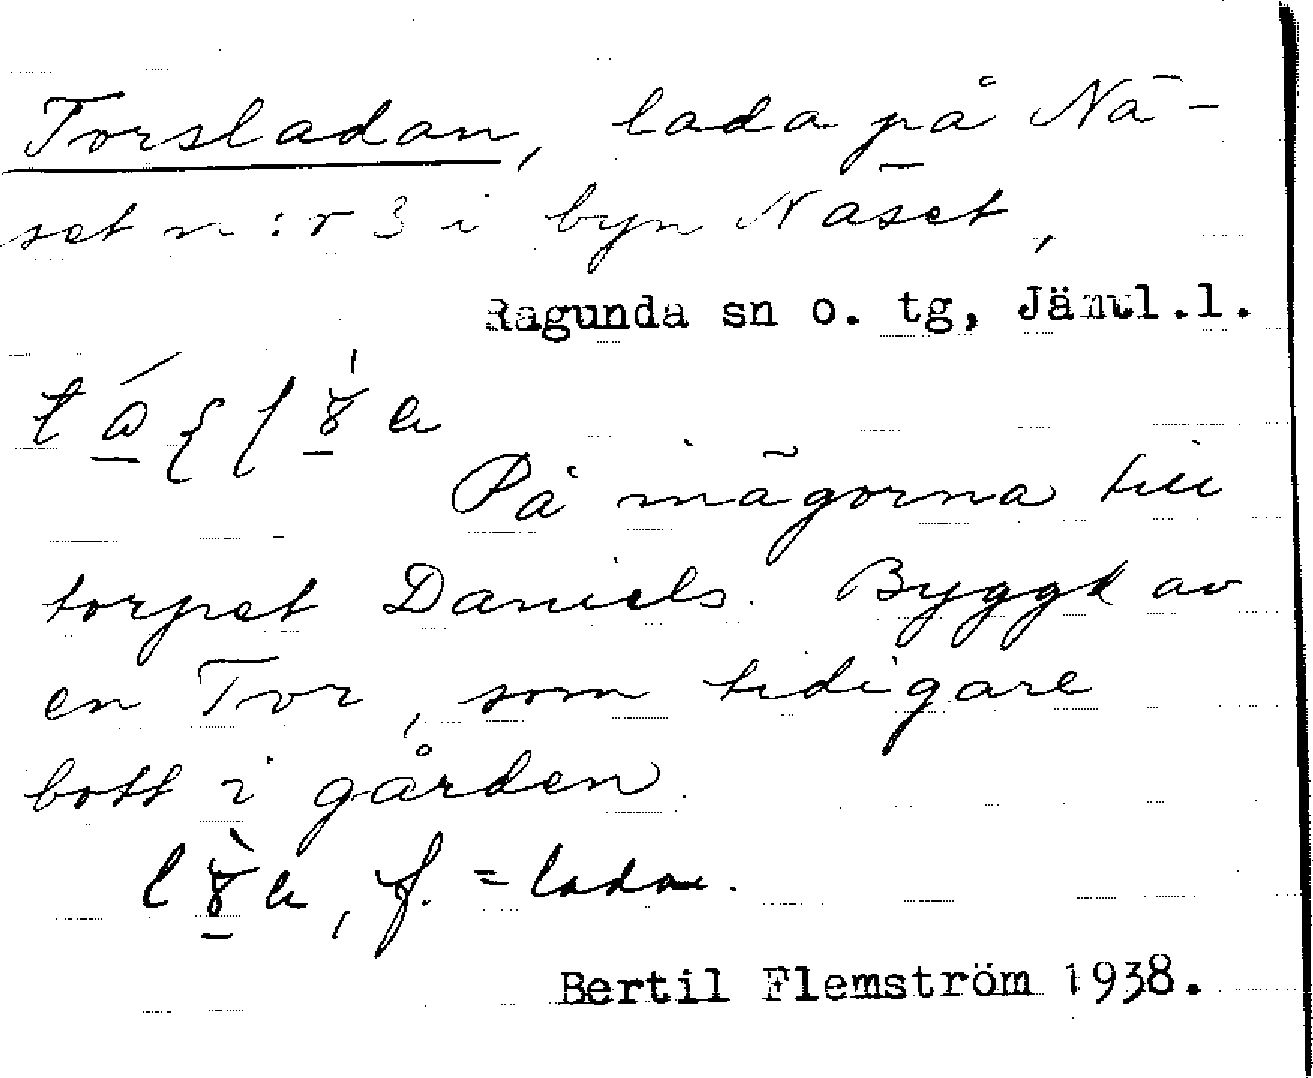 Torsladan, lada på Nä-
set n:r 3 i byn Näset,
Ragunda sn o. tg, Jämtl.l.
På inägorna till
torpet Daniels. Byggd av
en Tor, som tidigare
bott i gården.
f. = lada.
Bertil Flemström 1938.